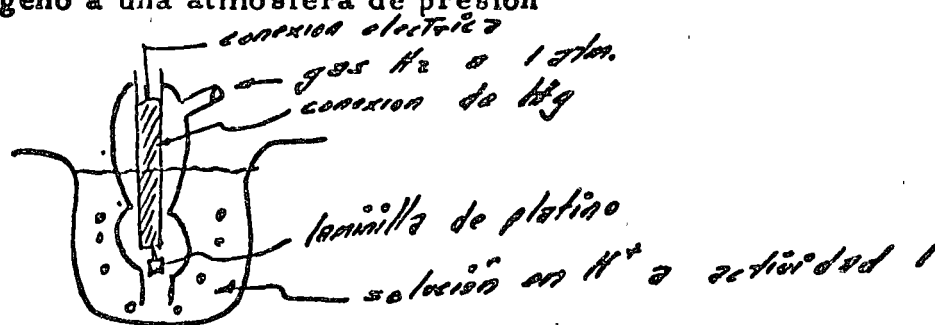 geno a una atmosfera de presión
conexion electrica
gas H2 a 1 atm.
conexion de Hg
laminilla de platino
solución en H+ a actividad 1